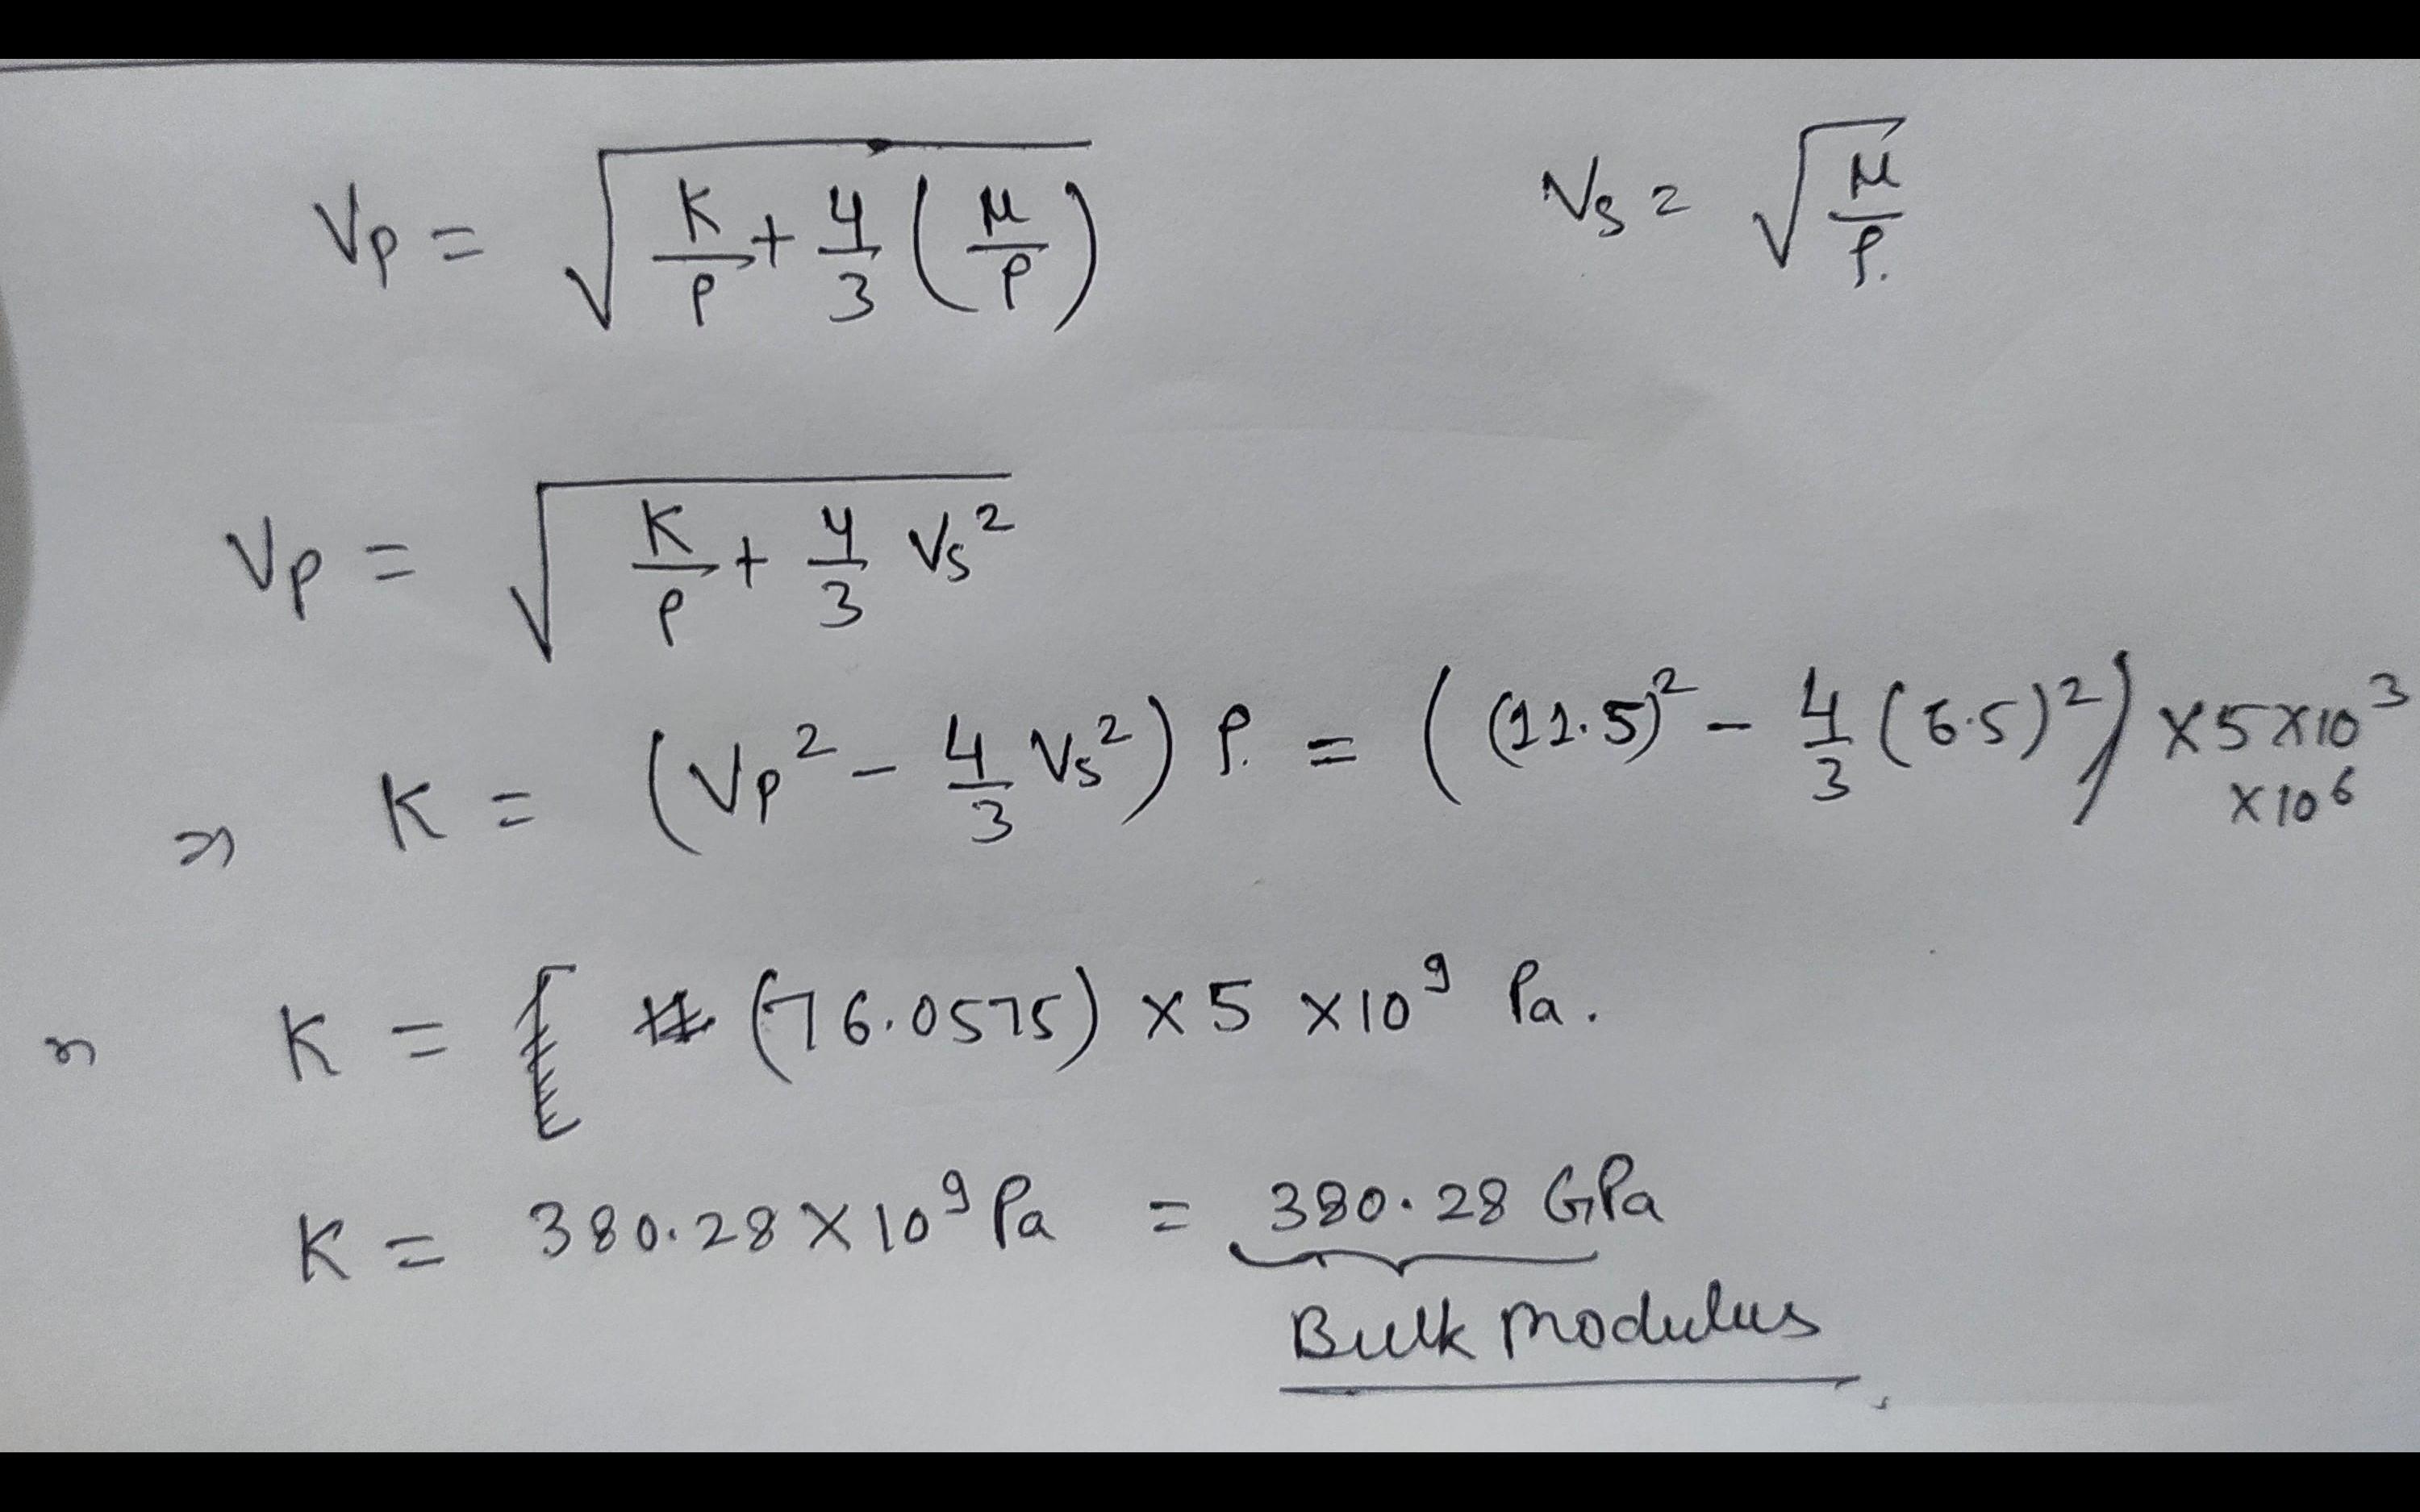 Vp = √(K/ρ + 4/3 (μ/ρ)) Vs = √(μ/ρ.)
Vp = √(K/ρ + 4/3 Vs²)
⇒ K = (Vp² - 4/3 Vs²) ρ. = ((11.5)² - 4/3 (6.5)²) × 5 × 10³
× 10⁶
⇒ K = (76.0575) × 5 × 10⁹ Pa.
K = 380.28 × 10⁹ Pa = 380.28 GPa
Bulk Modulus